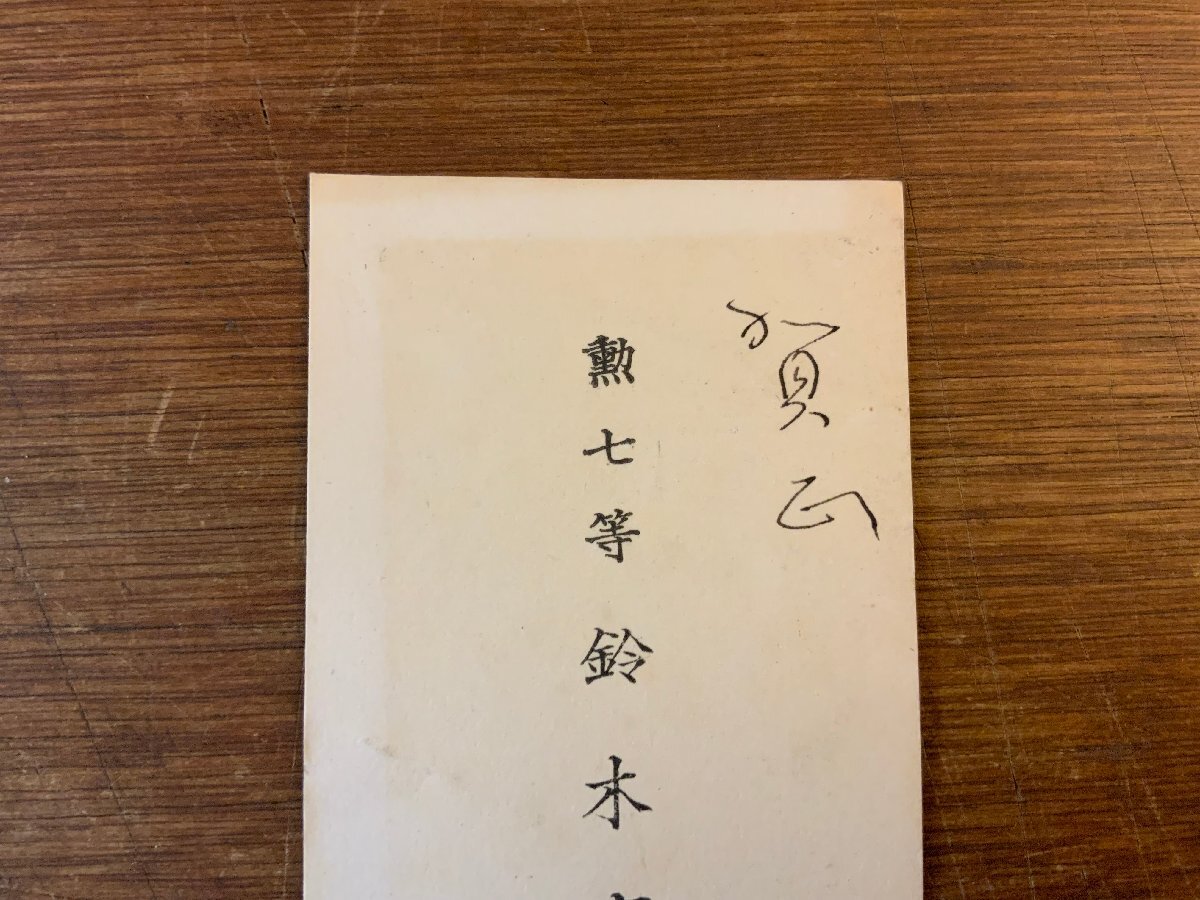 賀正
勲七等鈴木